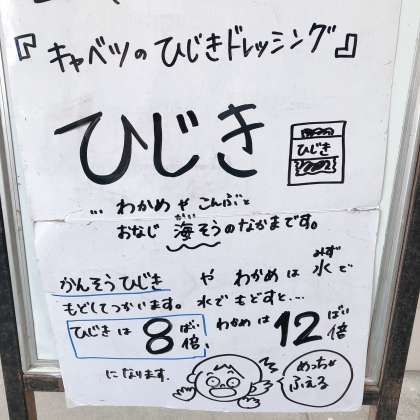 『キャベツのひじきドレッシング』
ひじき
ひじき
… わかめやこんぶと
おなじ 海そうのなかまです。
かい
かんそうひじき や わかめは 水で
みず
もどしてつかいます。水でもどすと…
ひじきは 8倍、わかめは 12倍
ばい ばい
になります。
めっちゃ
ふえる